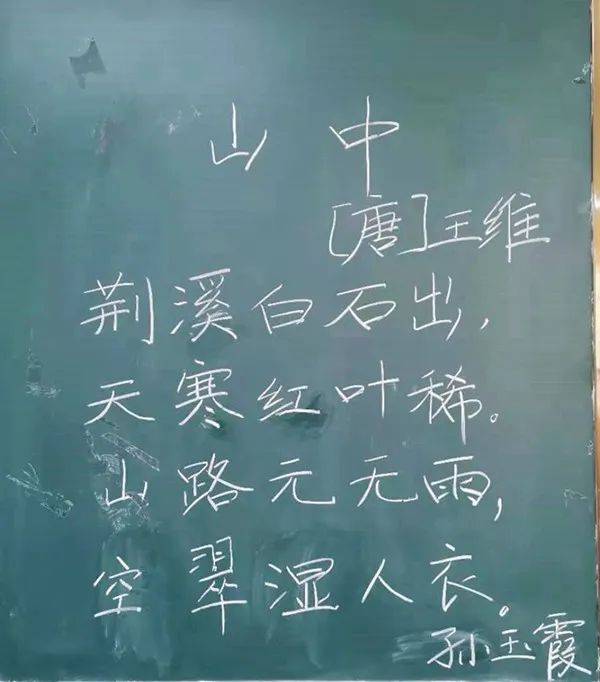 山中
[唐]王维
荆溪白石出，
天寒红叶稀。
山路元无雨，
空翠湿人衣。
孙玉霞